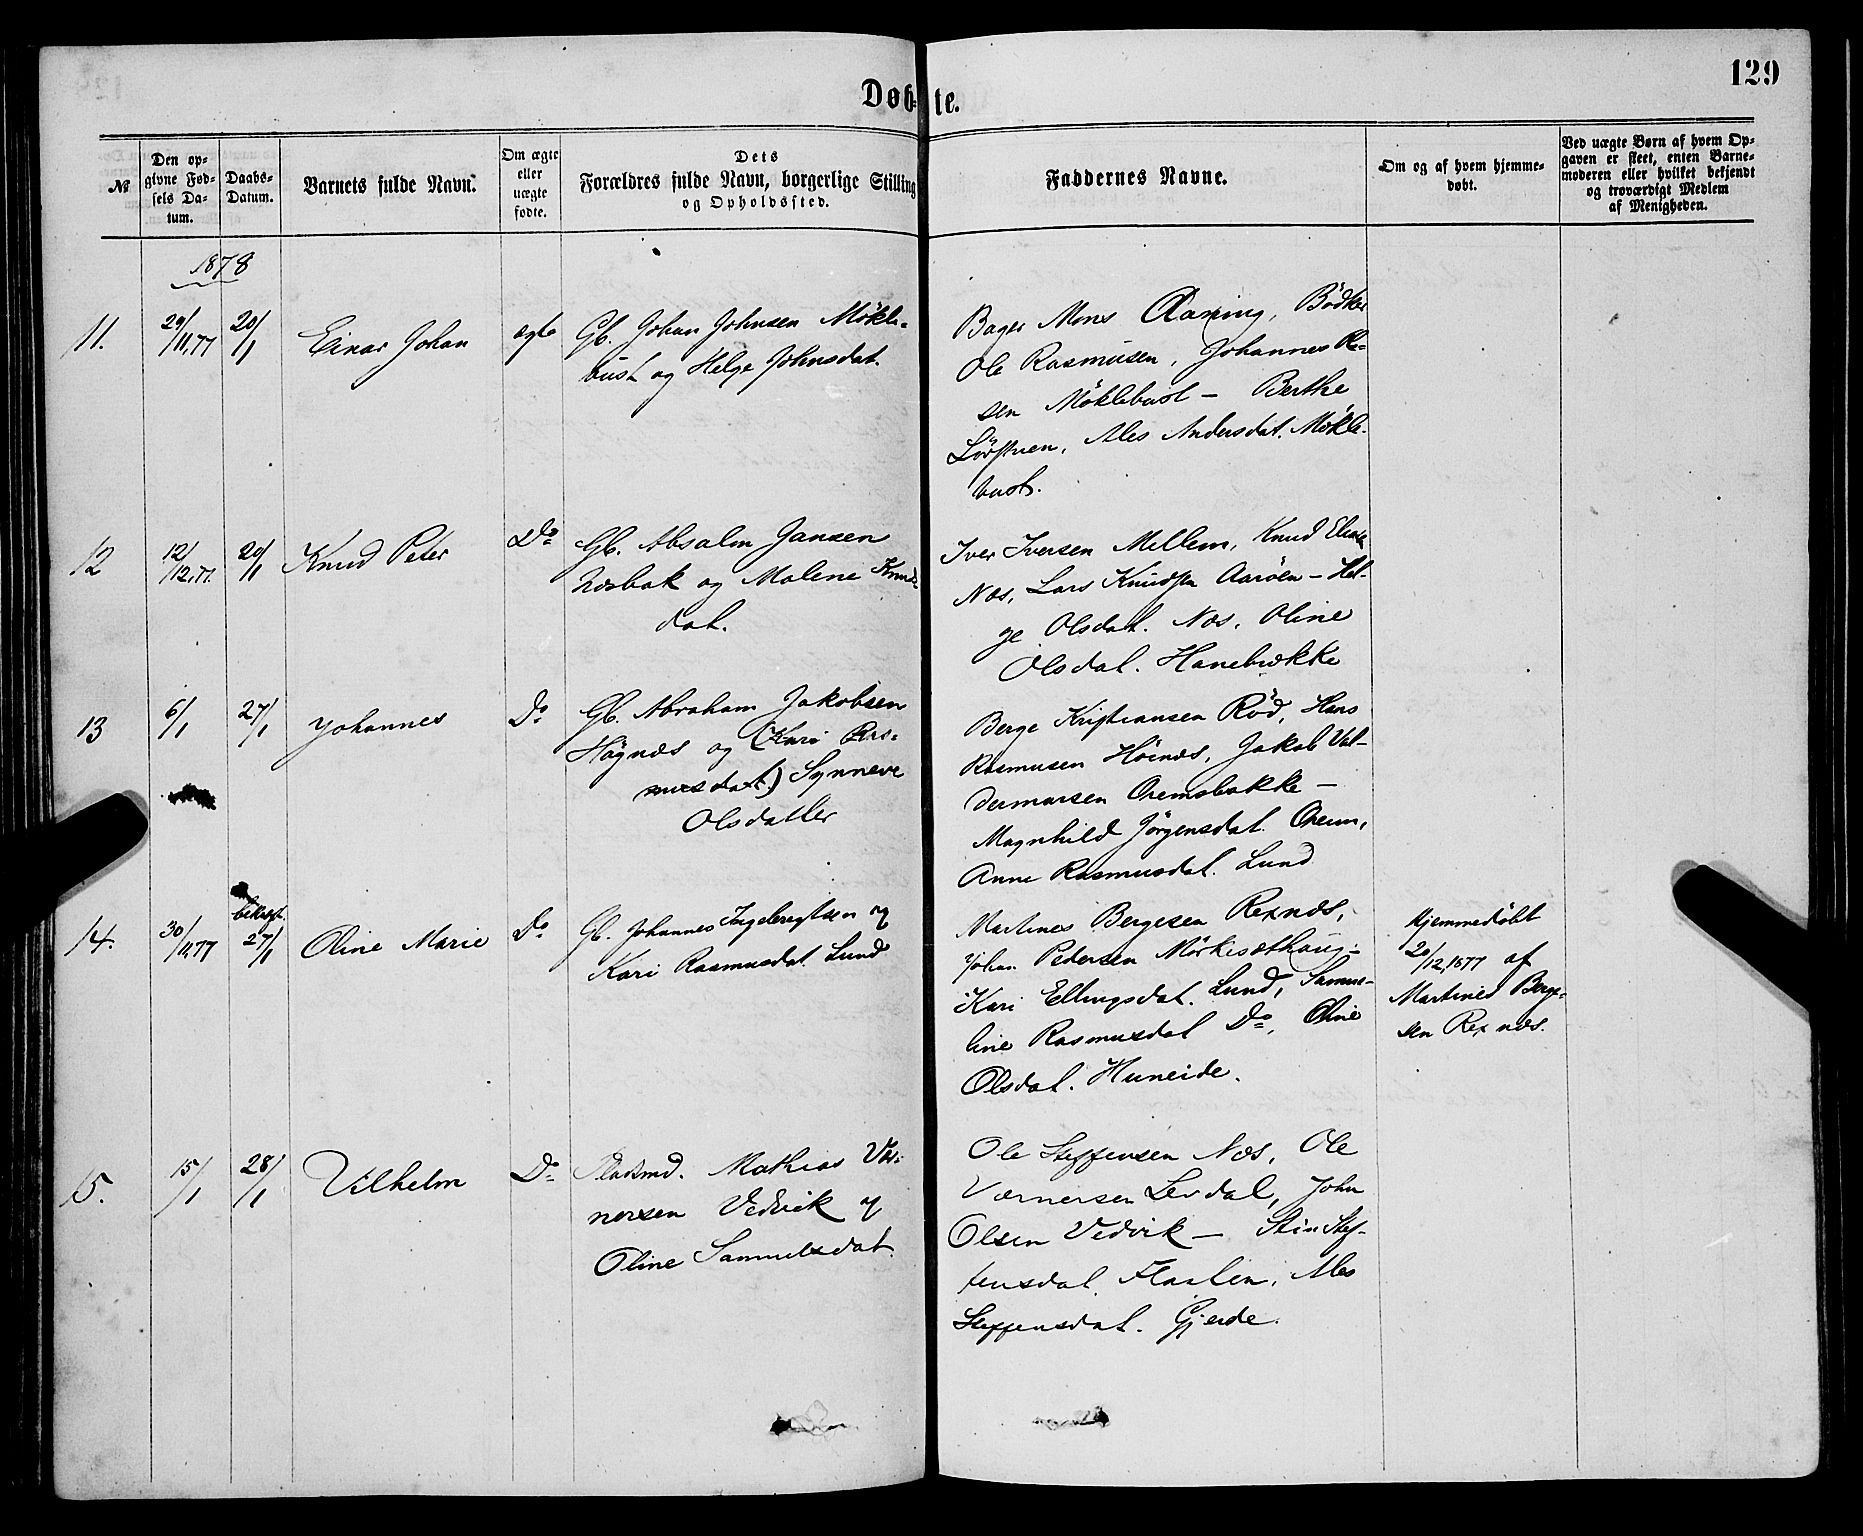 129
Døbte.
№
Den op-
givne Fød-
sels Da-
tum.
Daabs-
Datum.
Barnets fulde Navn.
Om ægte
eller
uægte
fødte.
Dets
Forældres fulde Navn, borgerlige Stilling
og Opholdssted.
Faddernes Navne.
Om og af hvem hjemme-
døbt.
Ved uægte Børn af hvem Op-
gaven er skeet, enten Barne-
moderen eller hvilket bekjendt
og troværdigt Medlem
af Menigheden.
1878
11.
29/11,77
20/1
Einar Johan
ægte
Gb. Johan Johnsen Mökle-
bust og Helge Johnsdat.
Bager Mons Aaning, Bödker
Ole Rasmusen, Johannes
sen Möklebust – Berthe
Ales Andersdat. Mökle-
bust.
12
12/12,77.
20/1
Knud Peter
Do
Gb. Absalon Jansen
Næsbak og Malene Knuds-
dat.
Iver Iversen Mellem, Knud
Næs, Lars Knudsen Aaröen – Hel-
ge Olsdat. Næs, Oline
Olsdat. Hanebrække
13
6/1
27/1
Johannes
Do
Gb. Abraham Jakobsen
Högnæs og (Kari Ras-
musdat.) Synneve
Olsdatter
Berge Kristiansen Röd, Hans
Rasmusen Höinæs, Jakob Val-
dermarsen Oremsbakke –
Magnhild Jörgensdat. Orem,
Anne Rasmusdat. Lund
14.
30/11,77
bekræft.
27/1
Oline Marie
Do
Gb. Johannes Ingebregtsen og
Kari Rasmusdat. Lund
Martines Bergesen Rexnæs,
Johan Pedersen Mörkisæthaug –
Kari Ellingsdat. Lund, Samue-
line Rasmusdat Do, Oline
Olsdat. Huneide.
Hjemmedöbt
20/12,1877 af
Martines Berge-
sen Rexnæs.
15.
15/1
28/1
Vilhelm
Do
Pladsmd. Mathias Vær-
nersen Vedvik og
Oline Samuelsdat.
Ole Steffensen Næs, Ole
Værnersen Levdal, John
Olsen Vedvik – Stina Stef-
fensdat. Flaaten, Ales
Steffensdat. Gjerde.